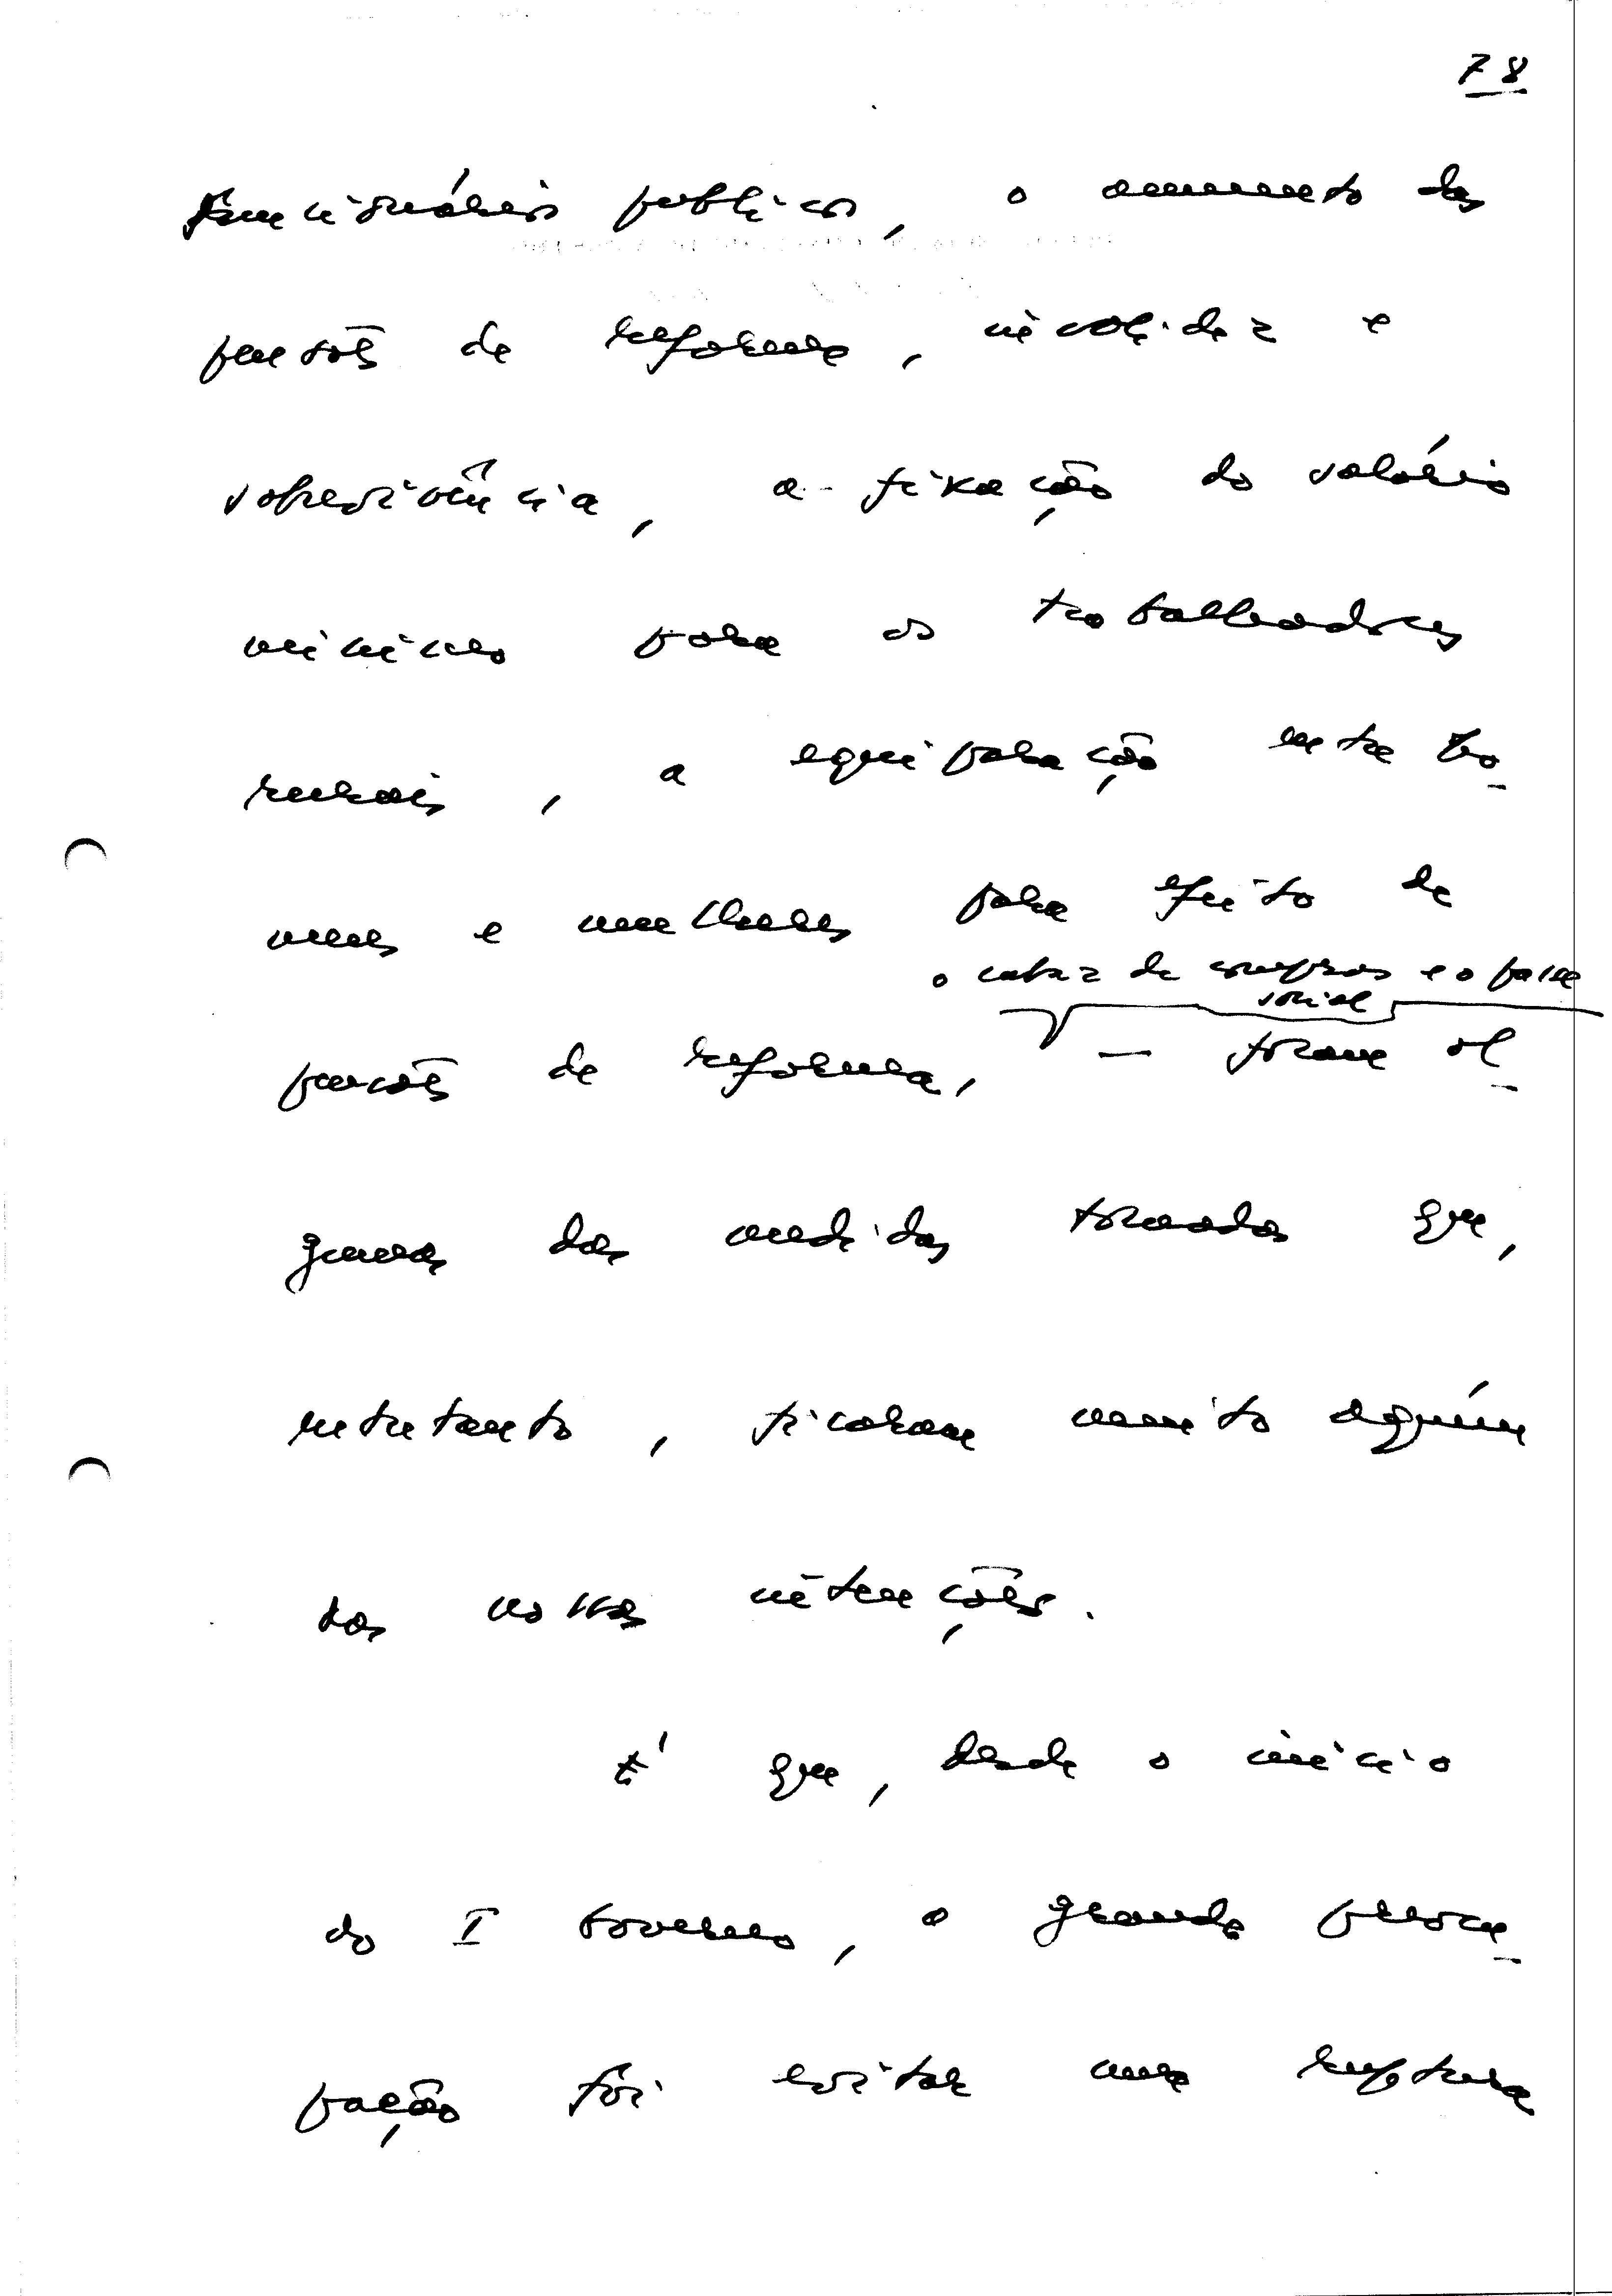 78
funcionários publicos, o aumento das
pensões de reforma, invalidez e
sobrevivência, a fixação do salário
minimo para os trabalhadores
rurais, a equiparação entre ho-
mens e mulheres para efeito de
o cabaz de compras e o passe
social
pensões de reforma, — foram al-
gumas das medidas tomadas que,
entretanto, ficaram muito aquém
das nossas intenções.
É que, desde o início
do I Governo, a grande preocu-
pação foi evitar uma ruptura